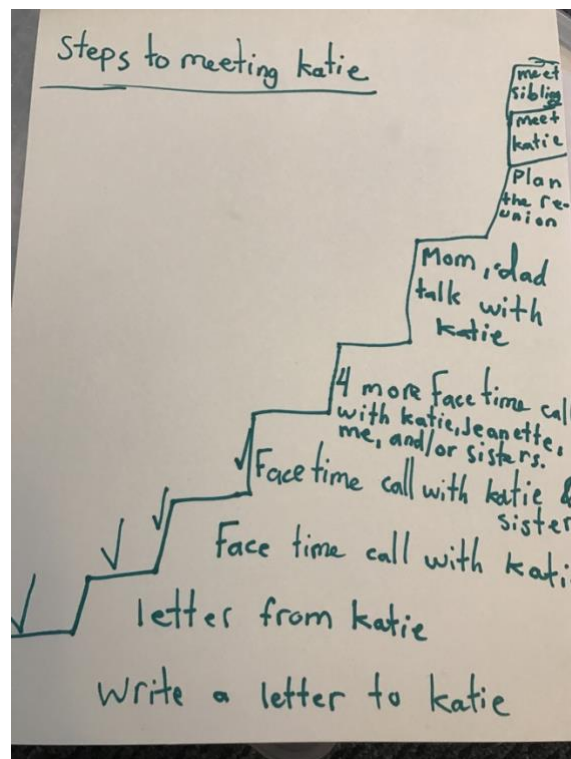 Steps to meeting katie
meet
sibling
meet
katie
Plan
the re-
union
Mom, dad
talk with
katie
4 more Face time cal
with katie, Jeanette,
me, and/or sisters.
Face time call with katie &
sister
Face time call with kati
letter from katie
Write a letter to katie